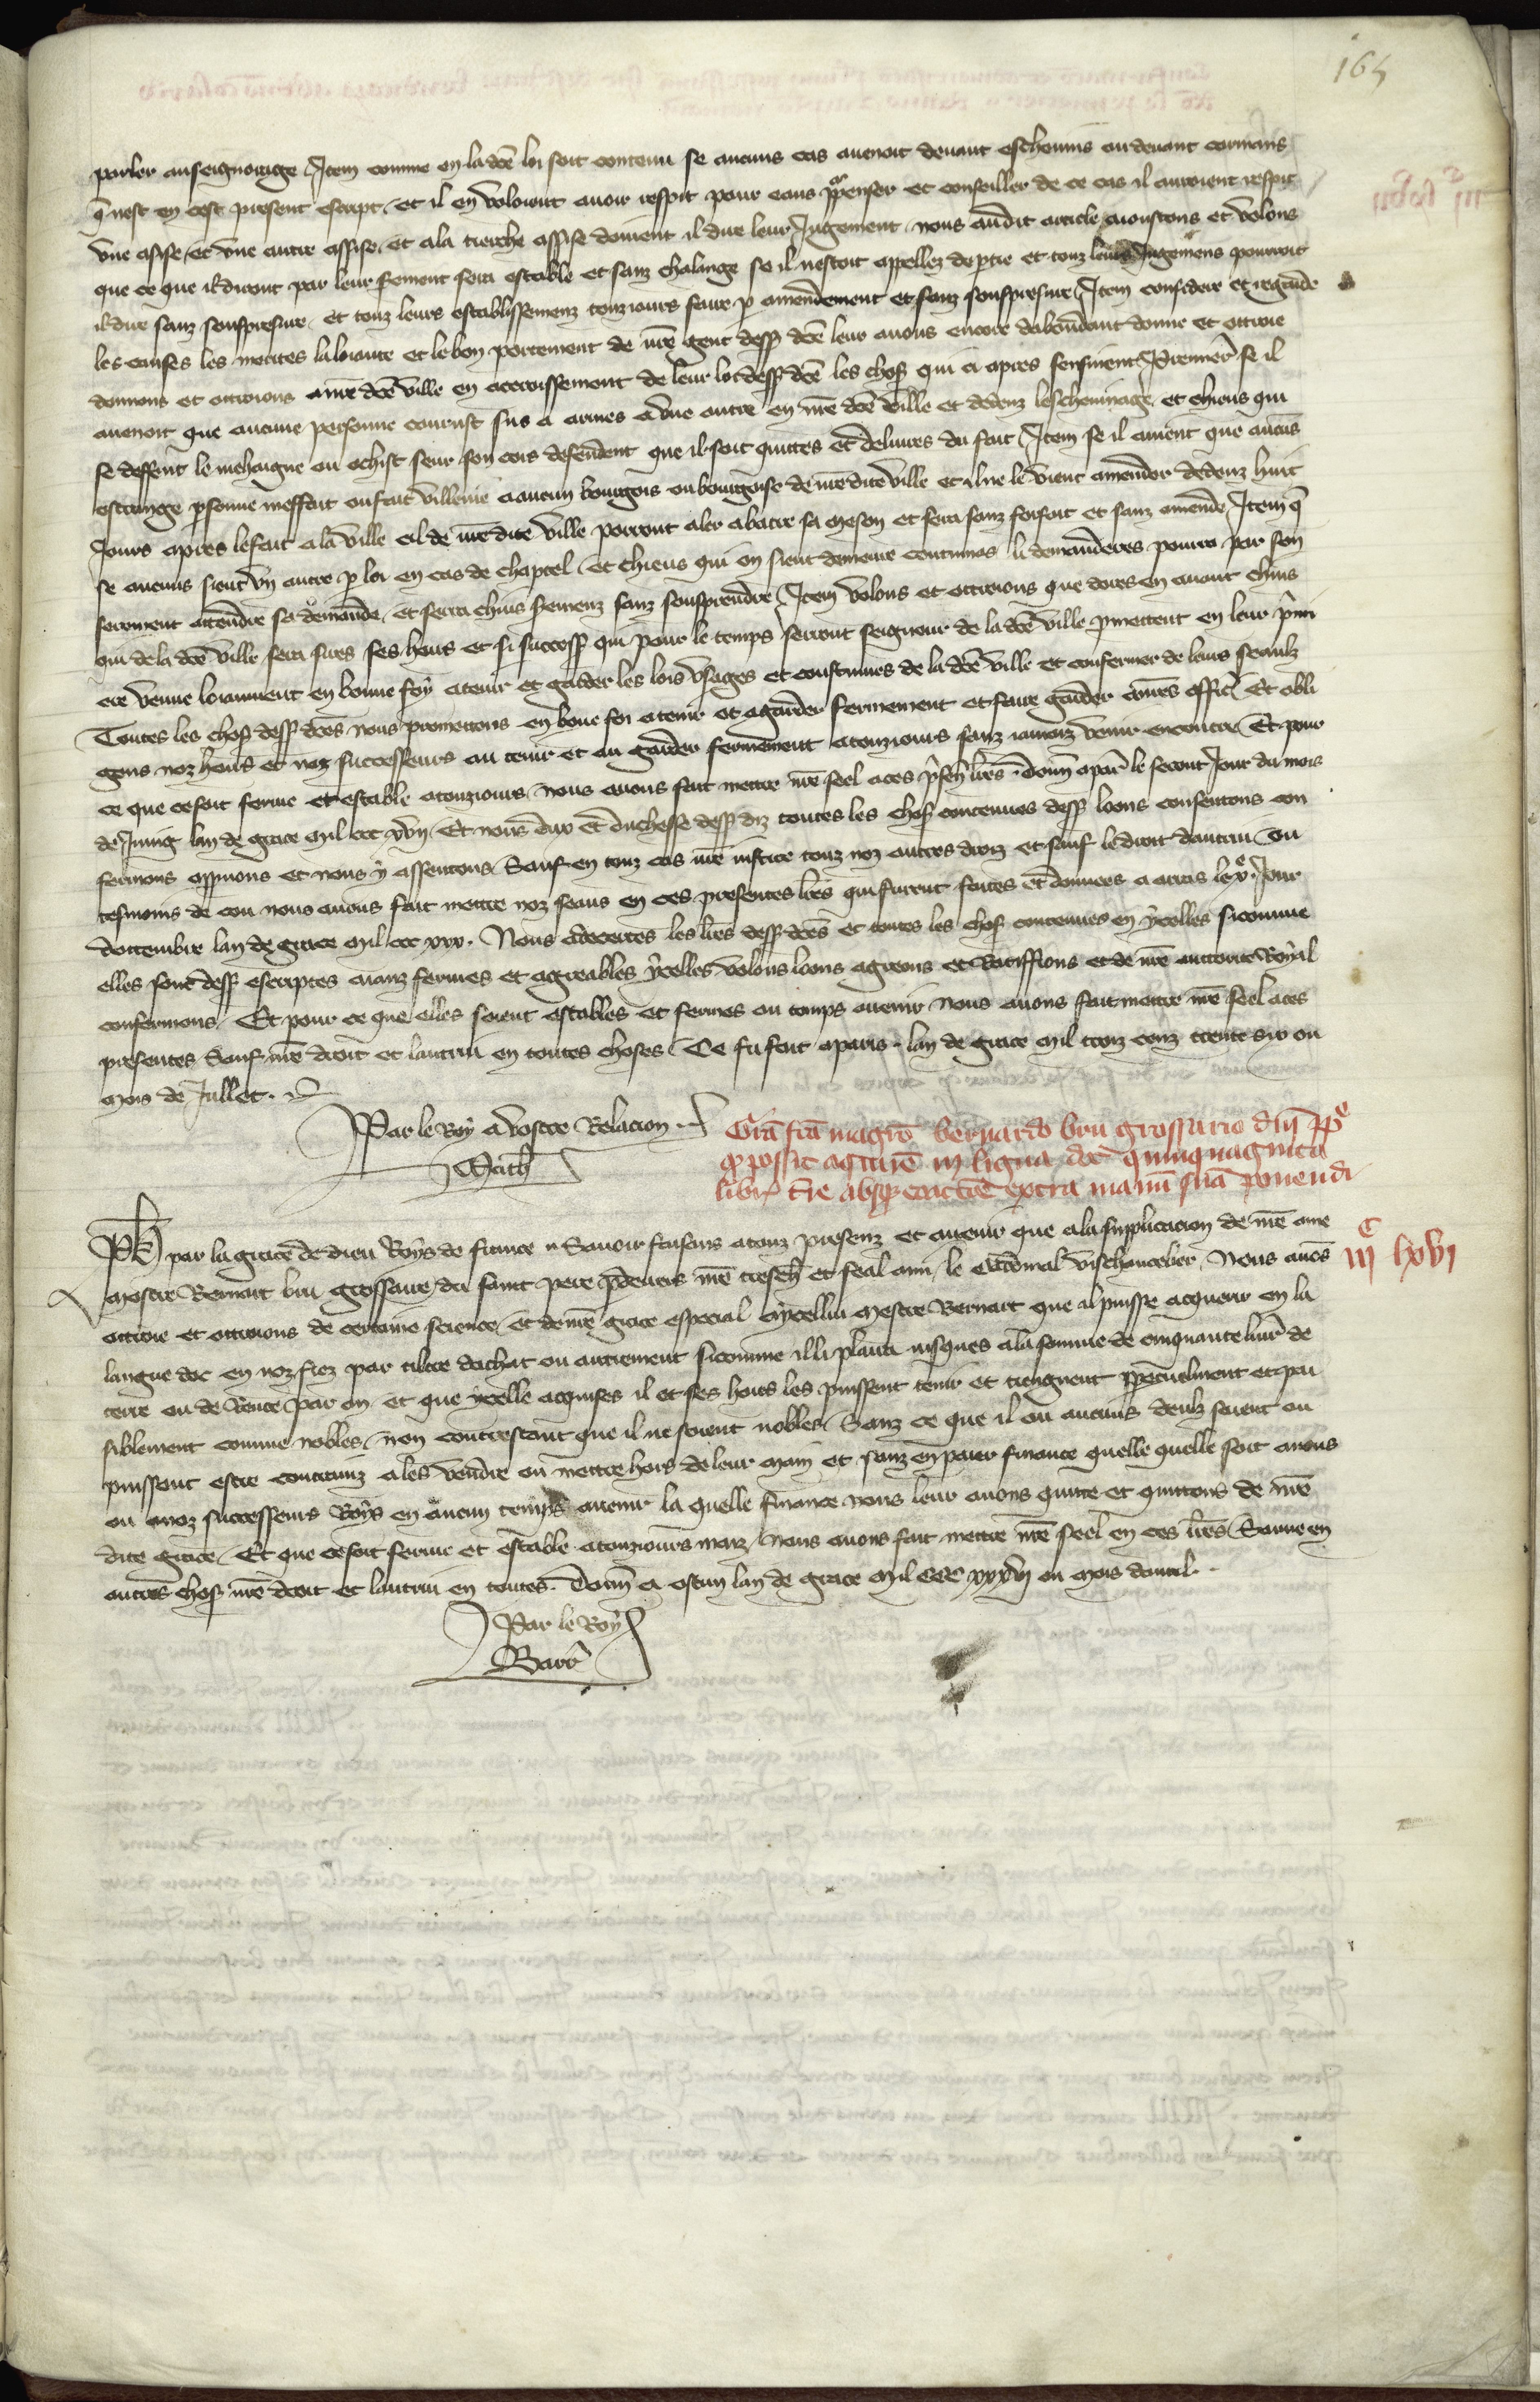 165
parler au seignourage Item comme en la dce loi soit contenu se aucuns cas auenoit deuant escheuins ou deuant cormans
q nest en cest present escript et il en voloient auoir respit pour eaus ppenser et conseillier de ce cas il auroient respit
vne assise et vne autre assise et a la tierche assise doiuent il dire leur Jugement nous au dit article aioustons et volons
que ce que il diront par leur serment sera estable et sanz chalange se il nestoit appellez de ptie et touz leurs Jugemens pourront
il dire sanz souspresure et touz leurs establissemenz touziours faire p amendement et sanz souspresure Item considere et regarde
les causes les merites la loiaute et le bon portement de nre gent dess dce leur auons encore dabondant donne et ottroie
donnons et ottroions a nre dce ville en acroissement de leur loi dess dce les chos qui ci apres sensuient Premier se il
auenoit que aucune personne courust sus a armes a vne autre en nre dce ville et dedenz lescheuinage et chieus qui
se deffent le mehaigne ou ochist seur son cors defendent que il soit quittes et deliures du fait Item se il auient que aucuns
estrange psonne meffait ou fait villenie a aucun bourgois ou bourgoise de nre dite ville et il ne le vient amender dedenz huit
Jours apres le fait a la ville cil de nre dite ville porront aler abatre sa meson et sera sanz forfait et sanz amende Item q
se aucuns sieut vn autre p loi en cas de chaptel et chieus qui on sieut demeure contumas li demanderes pourra par son
serement attendre sa demande et serra chius sermenz sanz souspendre Item volons et ottroions que dores en auant chius
qui de la dce ville sera sires ses hoirs et si success qui pour le temps seront seigneur de la dce ville pmettent en leur pmi
ere venue loiaument en bonne foy a tenir et garder les lois vsages et coustumes de la dce ville et confermer de leurs seaulz
Toutes les chos dess dces nous promettons en bone foi a tenir et a garder fermement et faire garder a nres offic Et obli
gons noz hoirs et noz successeurs au tenir et au garder fermement a touziours sanz iamaiz venir encontre Et pour
ce que ce soit ferme et estable a touziours nous auons fait mettre nre seel a ces psen lres donn a par le secont Jour du mois
de Juing lan de grace mil ccc xviij Et nous duc et duchesse dess diz toutes les chos contenues dess loons consentons con
fermons appruuons et nous y assentons Sauf en touz cas nre iustice touz noz autres droiz et sauf le droit dautrui En
tesmoins de cou nous auons fait mettre noz seaus en ces presentes lres qui furent faites et donnees a arras le xe Jour
dottembre lan de grace mil ccc xxx. Nous adecertes les lres dess dces et toutes les chos contenues en ycelles sicomme
elles sont dess escriptes aianz fermes et agreables ycelles volons loons agreons et Ratiffions et de nre auctorite Royal
confermons Et pour ce que elles soient estables et fermes ou temps auenir nous auons fait mettre nre seel a ces
presentes Sauf nre droit et lautrui en toutes choses Ce fu fait a paris lan de grace mil trois cenz trente six ou
mois de Jullet.
Par le Roy a vostre Relacion
Math
Gra fca magro bernardo bru grossario dni pp
q possit aqirire in ligua doc quinquaginta
libr tre absq coactoe extra manu sua ponendi
iijc lxvi
Ph par la grace de dieu Roys de france Sauoir faisons a touz presenz et auenir que a la supplicacion de nre ame
mestre Bernart bru grossaire du saint pere pdeuers nre treschr et feal ami le Cardinal vischancelier Nous auons
ottroie et ottroions de certaine science et de nre grace especial a ycellui mestre Bernart que il puisse acquerir en la
langue doc en noz fiez par tiltre dachat ou autrement sicomme il li plaira iusques a la somme de cinquante liur de
terre ou de Rente par an et que ycelle acquises il et ses hoirs les puissent tenir et tiengnent ppetuelment et pai
siblement comme nobles non contrestant que il ne soient nobles Sanz ce que il ou aucuns deulz soient ou
puissent estre contrainz a les vendre ou mettre hors de leur main et sanz en paier finance quelle quelle soit a nous
ou a noz successeurs Roys en aucun temps auenir la quelle finance nous leur auons quitte et quittons de nre
dite grace Et que ce soit ferme et estable a touziours mais nous auons fait mettre nre seel en ces lres Sauue en
autres chos nre droit et lautrui en toutes. Donn a ostun lan de grace mil CCC xxxvj ou mois dauril
Par le Roy
Barr